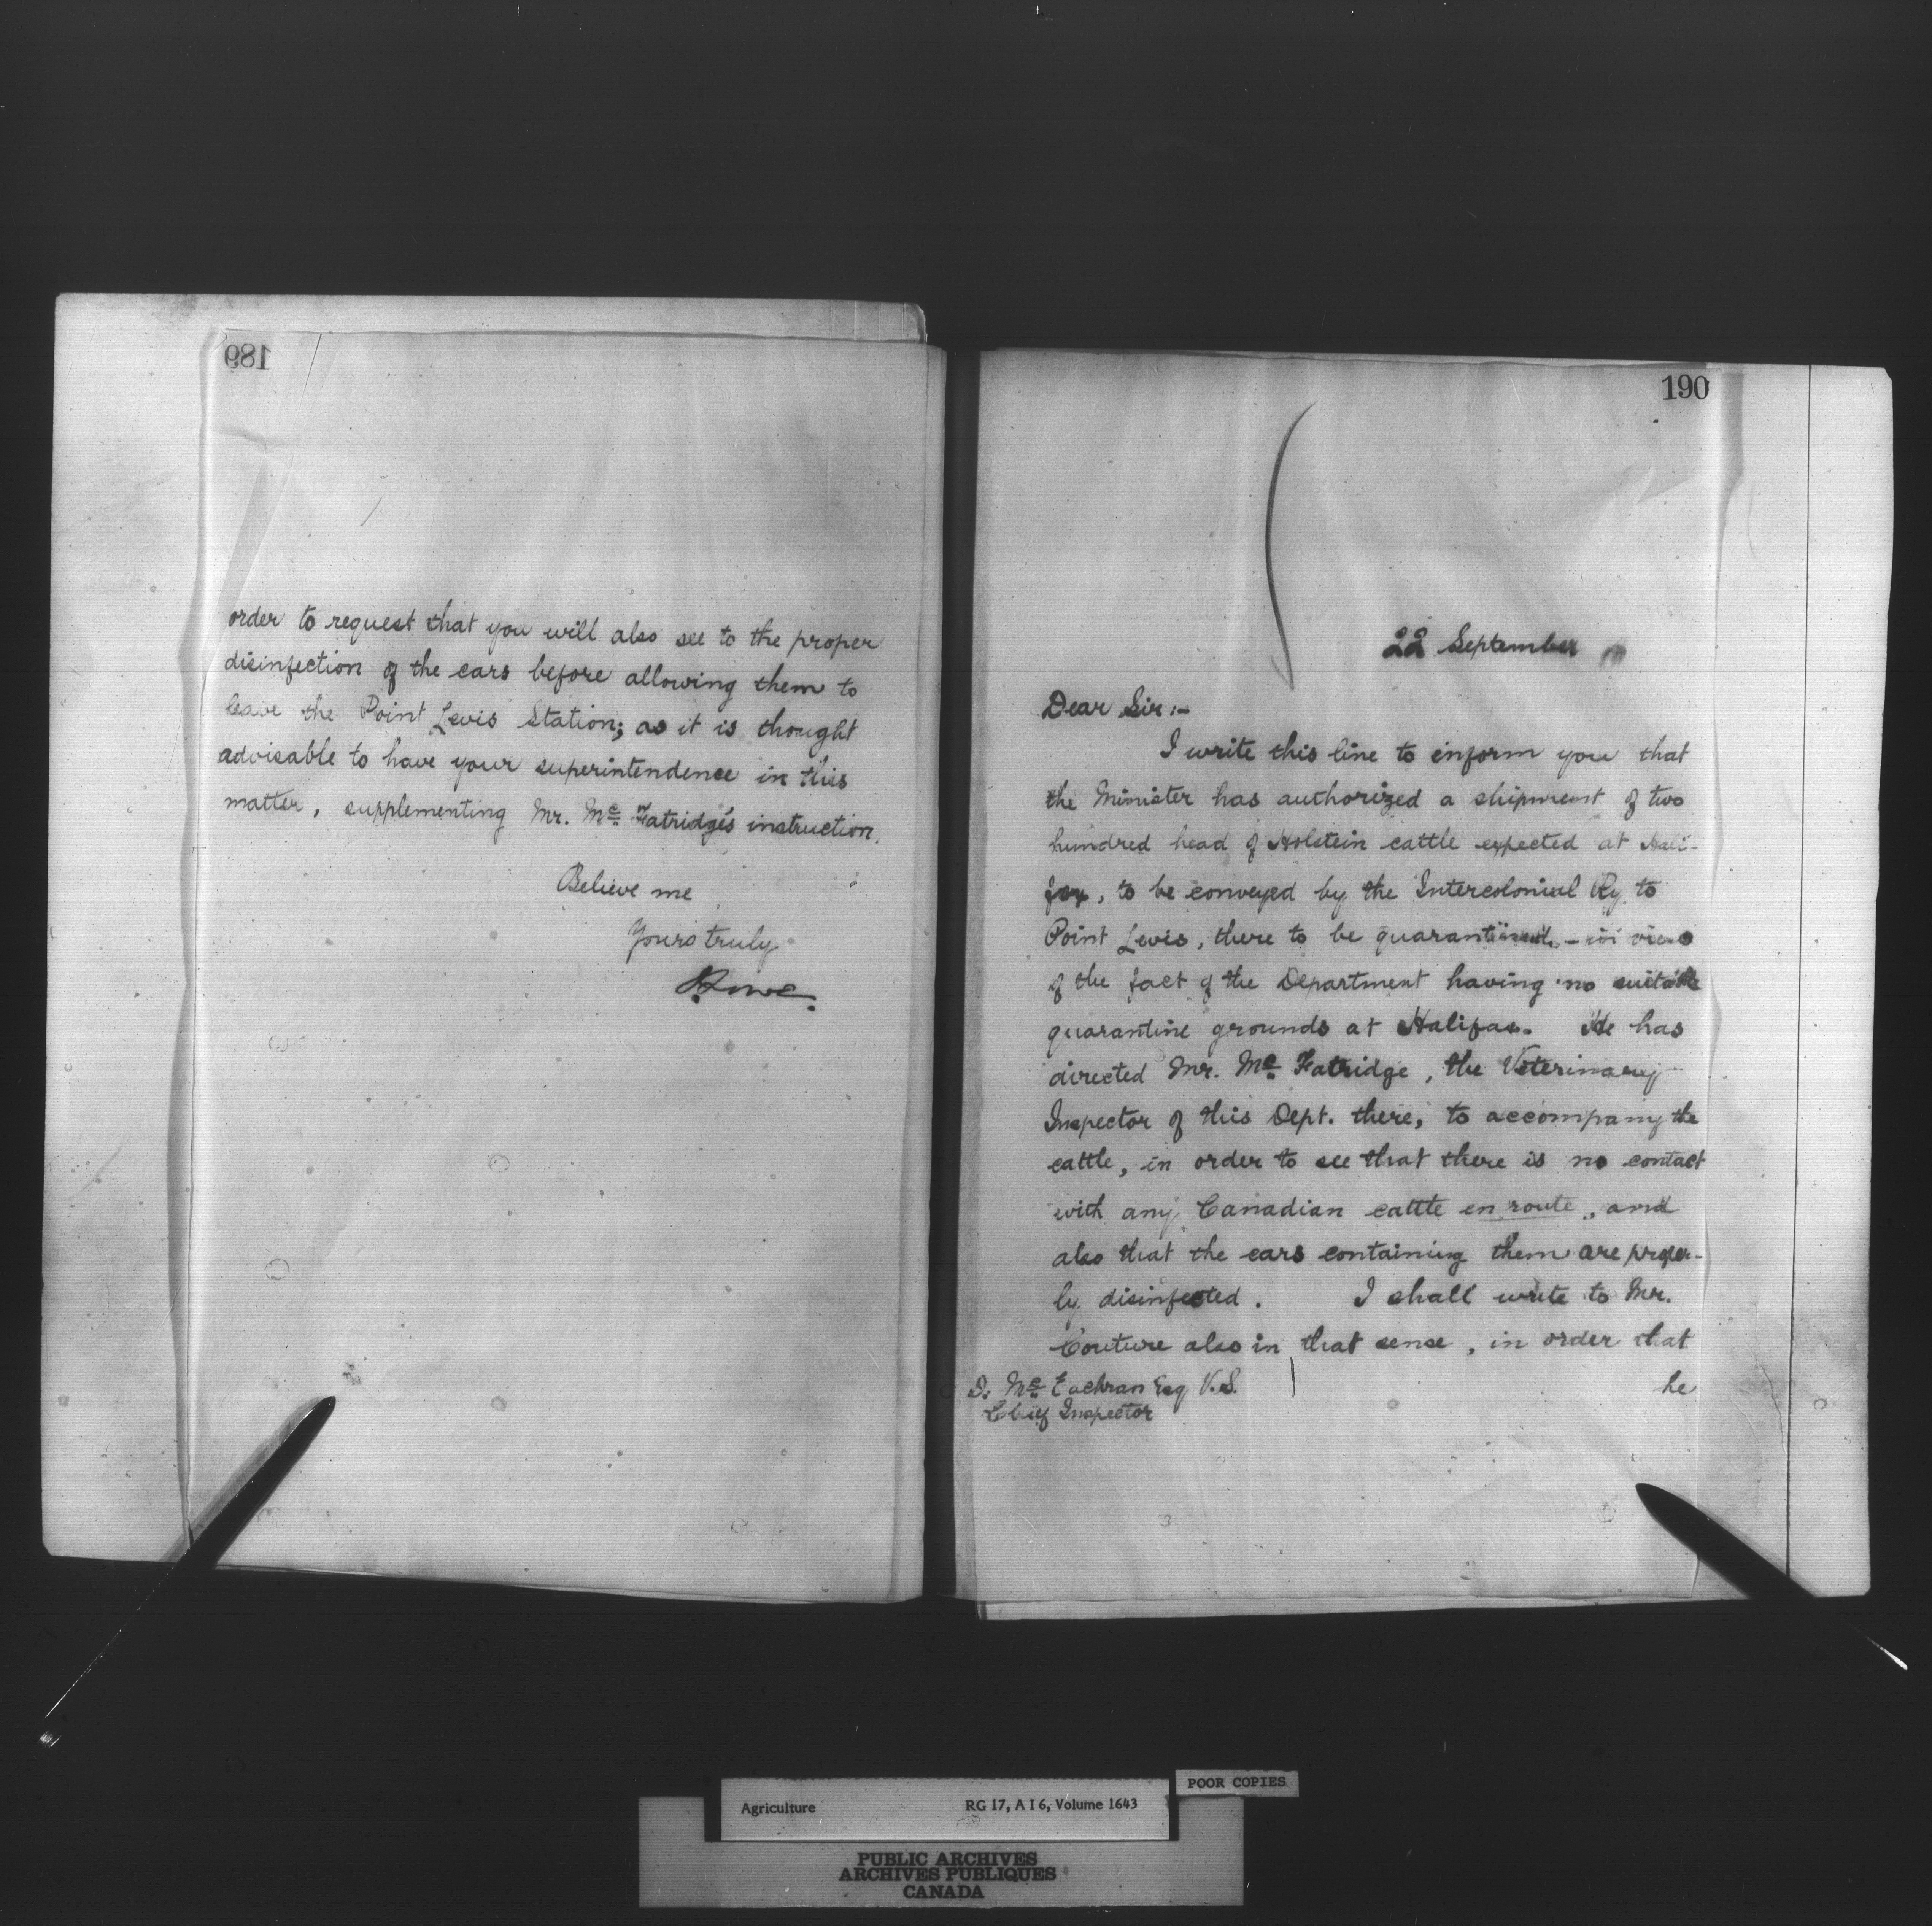 189
order to request that you will also see to the proper
disinfection of the cars before allowing them to
leave the Point Levis Station; as it is thought
advisable to have your superintendence in this
matter, supplementing Mr. Mc Fatridge's instruction.
Believe me
Yours truly
190
22 September
Dear Sir:-
I write this line to inform you that
the Minister has authorized a shipment of two
hundred head of Holstein cattle expected at Hali-
fax, to be conveyed by the Intercolonial Ry. to
Point Levis, there to be quarantined, - in view
of the fact of the Department having no suitable
quarantine grounds at Halifax. He has
directed Mr. Mc Fatridge, the Veterinary
Inspector of this Dept. there, to accompany the
cattle, in order to see that there is no contact
with any Canadian cattle en route, and
also that the cars containing them are proper-
ly disinfected. I shall write to Mr.
Couture also in that sense, in order that
he
D. Mc Eachran Esq V.S.
Chief Inspector
POOR COPIES
Agriculture RG 17, A I 6, Volume 1643
PUBLIC ARCHIVES
ARCHIVES PUBLIQUES
CANADA